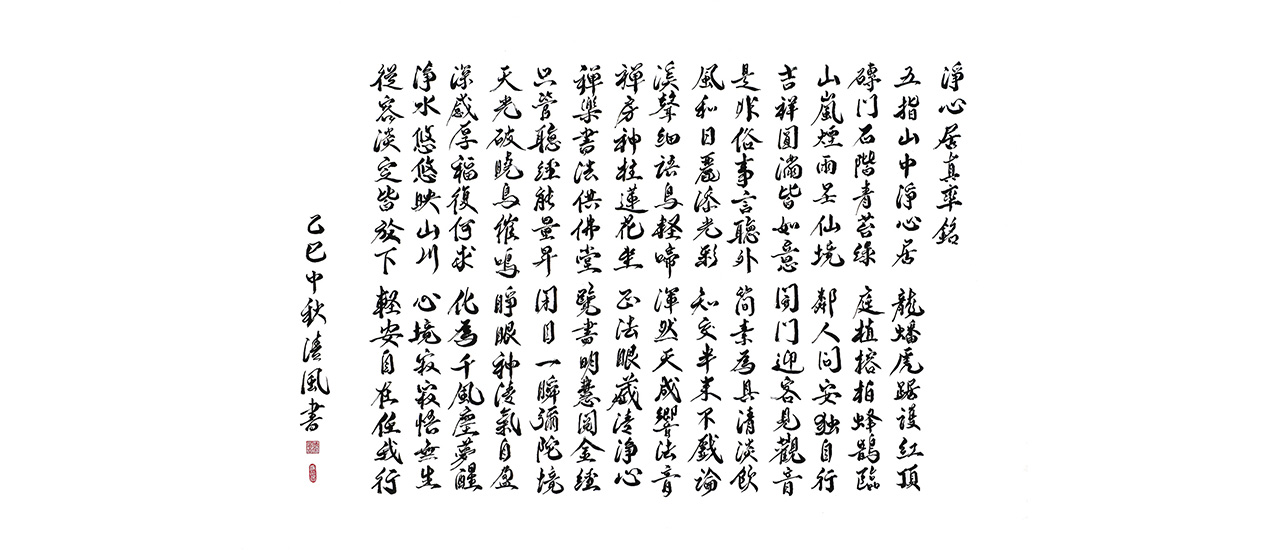 淨心居真率銘
五指山中淨心居 龍蟠虎踞護紅頂
磚門石階青苔綠 庭植榕柏蜂鵲臨
山嵐煙雨呈仙境 鄰人問安獨自行
吉祥圓滿皆如意 開門迎客見觀音
是非俗事言聽外 簡素為具清淡飲
風和日麗添光彩 知交半來不戲論
溪聲細語鳥輕啼 渾然天成響法音
禪房神柱蓮花坐 正法眼藏清淨心
禅樂書法供佛堂 覽書明慧閱金經
只管聽經能量昇 閉目一瞬彌陀境
天光破曉鳥催鳴 睜眼神淩氣自盈
深感厚福復何求 化為千風塵夢醒
淨水悠悠映山川 心境寂寂悟無生
從容淡定皆放下 輕安自在任我行
乙巳中秋清風書